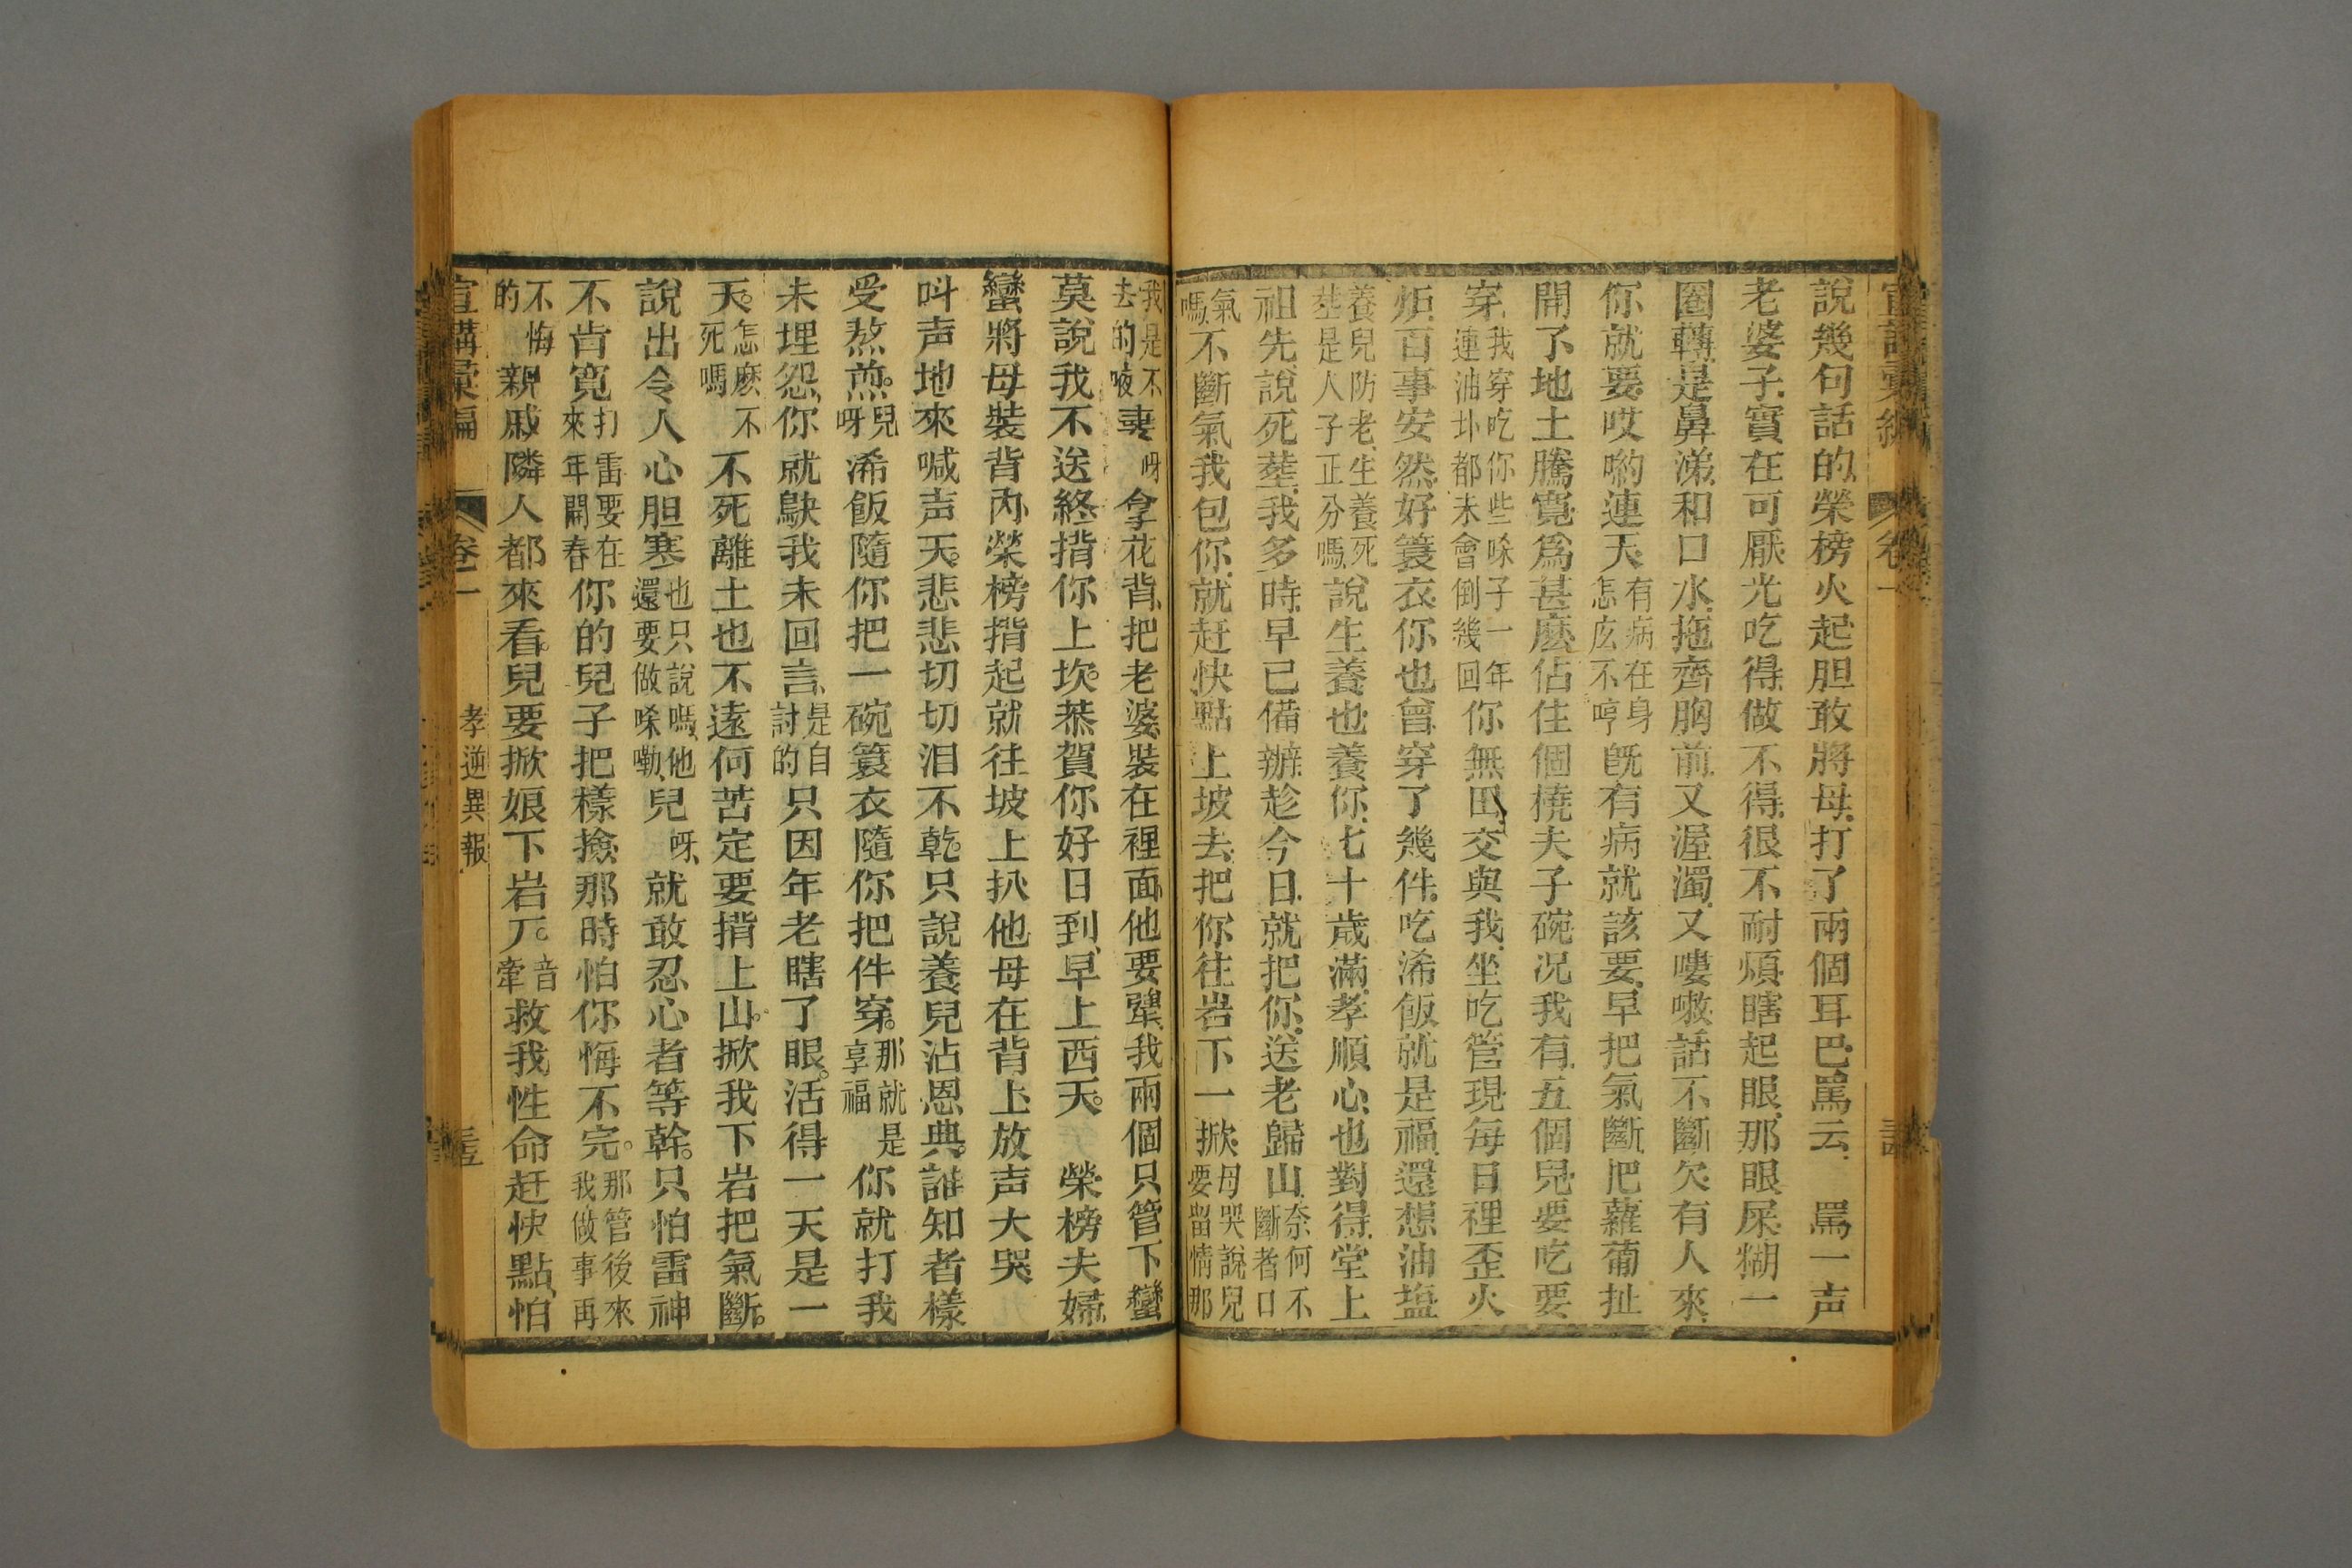 宣講彙編 卷一
說幾句話的榮榜火起胆敢將母打了兩個耳巴罵云 罵一声
老婆子實在可厭光吃得做不得很不耐煩瞎起眼那眼屎糊一
圈轉是鼻涕和口水拖齊胸前又渥濁又嘍嗽話不斷欠有人來
你就要哎喲連天有病在身怎庅不哼旣有病就該要早把氣斷把蘿蔔扯
開了地土騰寬爲甚麽佔住個橈夫子碗况我有五個兒要吃要
穿我穿吃你些𠸄子一年連油圤都未會倒幾回你無田交與我坐吃管現每日裡歪火
炬百事安然好簑衣你也曾穿了幾件吃浠飯就是福還想油塩
養兒防老生養死塟是人子正分嗎說生養也養你七十歲滿孝順心也對得堂上
祖先說死塟我多時早已備辦趁今日就把你送老歸山奈何不斷者口
氣嗎不斷氣我包你就赶快點上坡去把你往岩下一掀母哭說兒要留情那
我是不去的唆妻呀拿花背把老婆裝在裡面他要犟我兩個只管下蠻
莫說我不送終揹你上坎恭賀你好日到早上西天 榮榜夫婦
蠻將母裝背內榮榜揹起就往坡上扒他母在背上放声大哭
呌声地來喊声天悲悲切切泪不乾只說養兒沾恩典誰知者樣
受熬煎兒呀浠飯隨你把一碗簑衣隨你把件穿那就是享福你就打我
未埋怨你就歇我未回言是自討的只因年老瞎了眼活得一天是一
天怎麽不死嗎不死離土也不遠何苦定要揹上山掀我下岩把氣斷
說出令人心胆寒也只說嗎他還要做𠸄嘞兒呀就敢忍心者等幹只怕雷神
不肯寬打雷要在來年開春你的兒子把樣撿那時怕你悔不完那管後來我做事再
不悔的親戚隣人都來看兒要掀娘下岩丌音牽救我性命赶快點怕
宣講彙編 卷一 孝逆異報